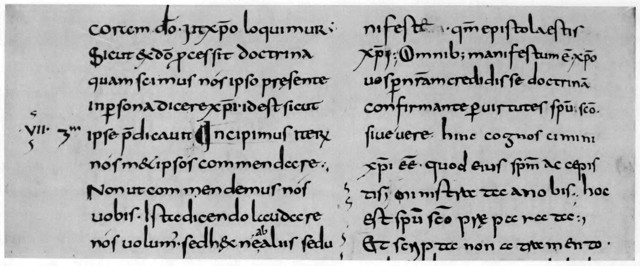 coram dō. In xp̄o loquimur;
Sicut ex dō p̄cessit doctrina
quam scimus nós ipso presente
in persona dicere xp̄i. id est sicut
·VII·
ipse p̄dicauit Incipimus iterū
nós metipsos commendare;
Non ut commendemus nós
uobis. Ista dicendo laudare
nós volum̄. sed hęc ne alius sedu
nifestati. qm̄ epistola estis
xp̄i; Omnib; manifestum ē xp̄o
uos p nr̄am credidisse doctrinā
confirmante p uirtutes sp̄u sc̄o.
siue uere hinc cognoscimini
xp̄i eē. quod eius sp̄m accepis
tis; ministrata a nobis. hoc
est sp̄u sc̄o pręparata;
Et scripta non atramento.